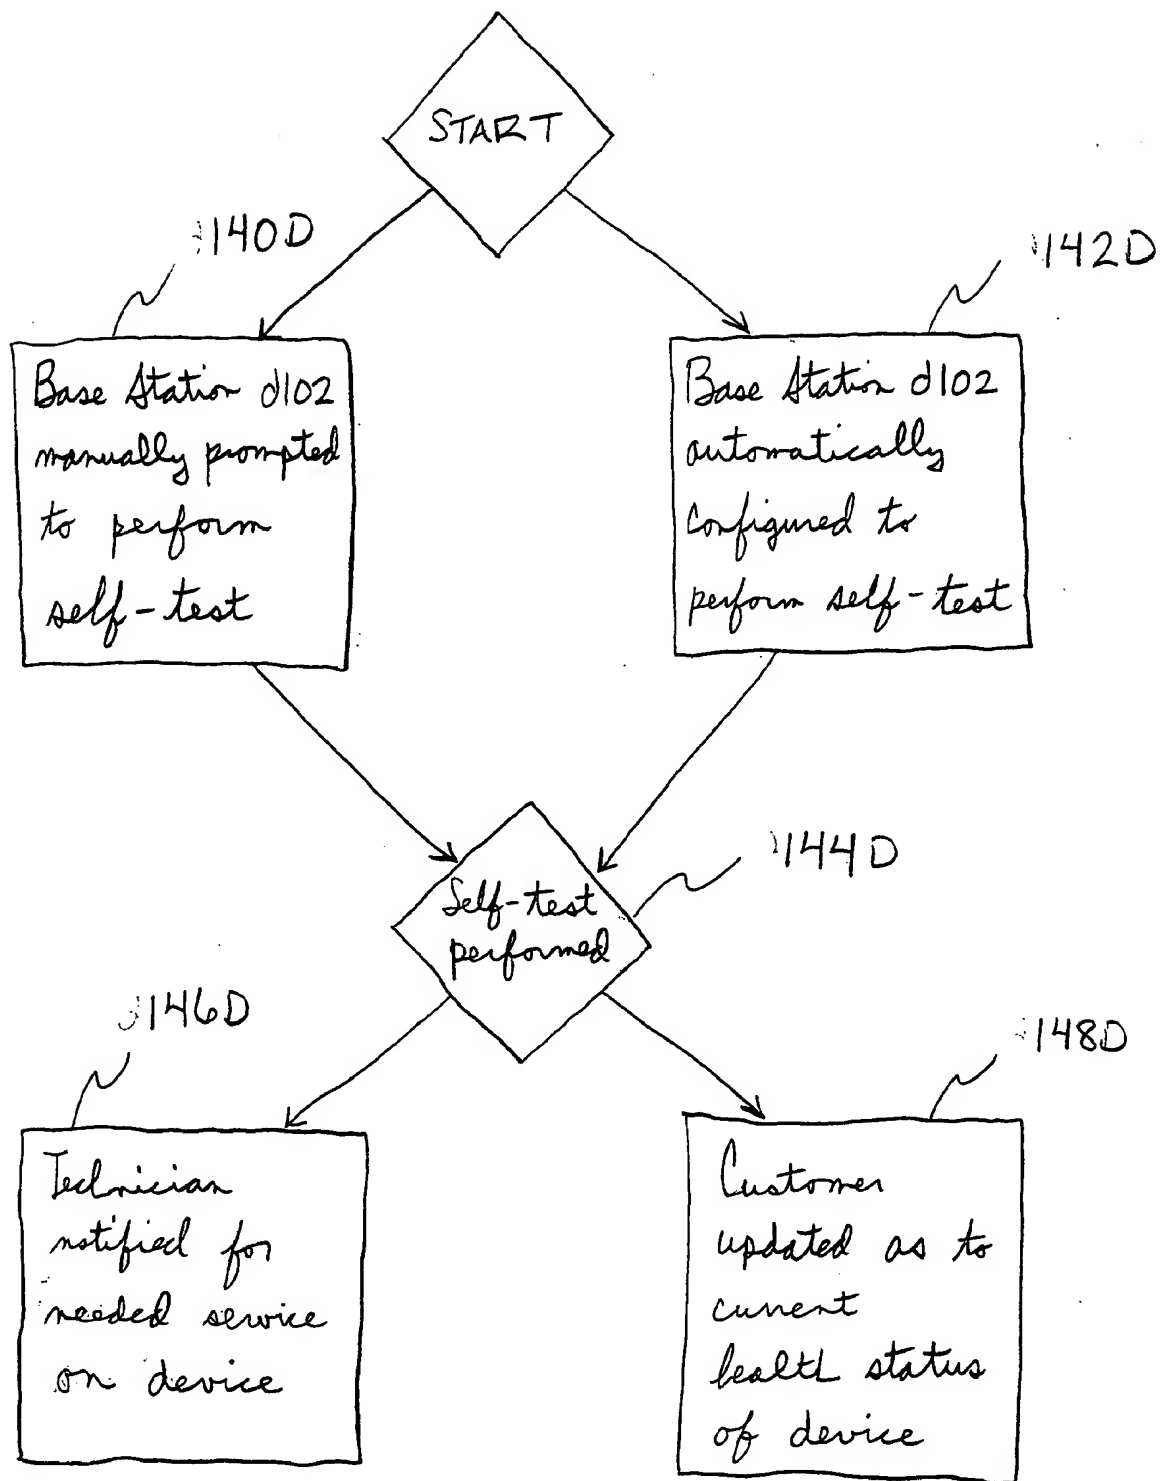 START
1140D
1142D
Base Station d102
manually prompted
to perform
self-test
Base Station d102
automatically
configured to
perform self-test
1144D
Self-test
performed
1146D
1148D
Technician
notified for
needed service
on device
Customer
updated as to
current
health status
of device